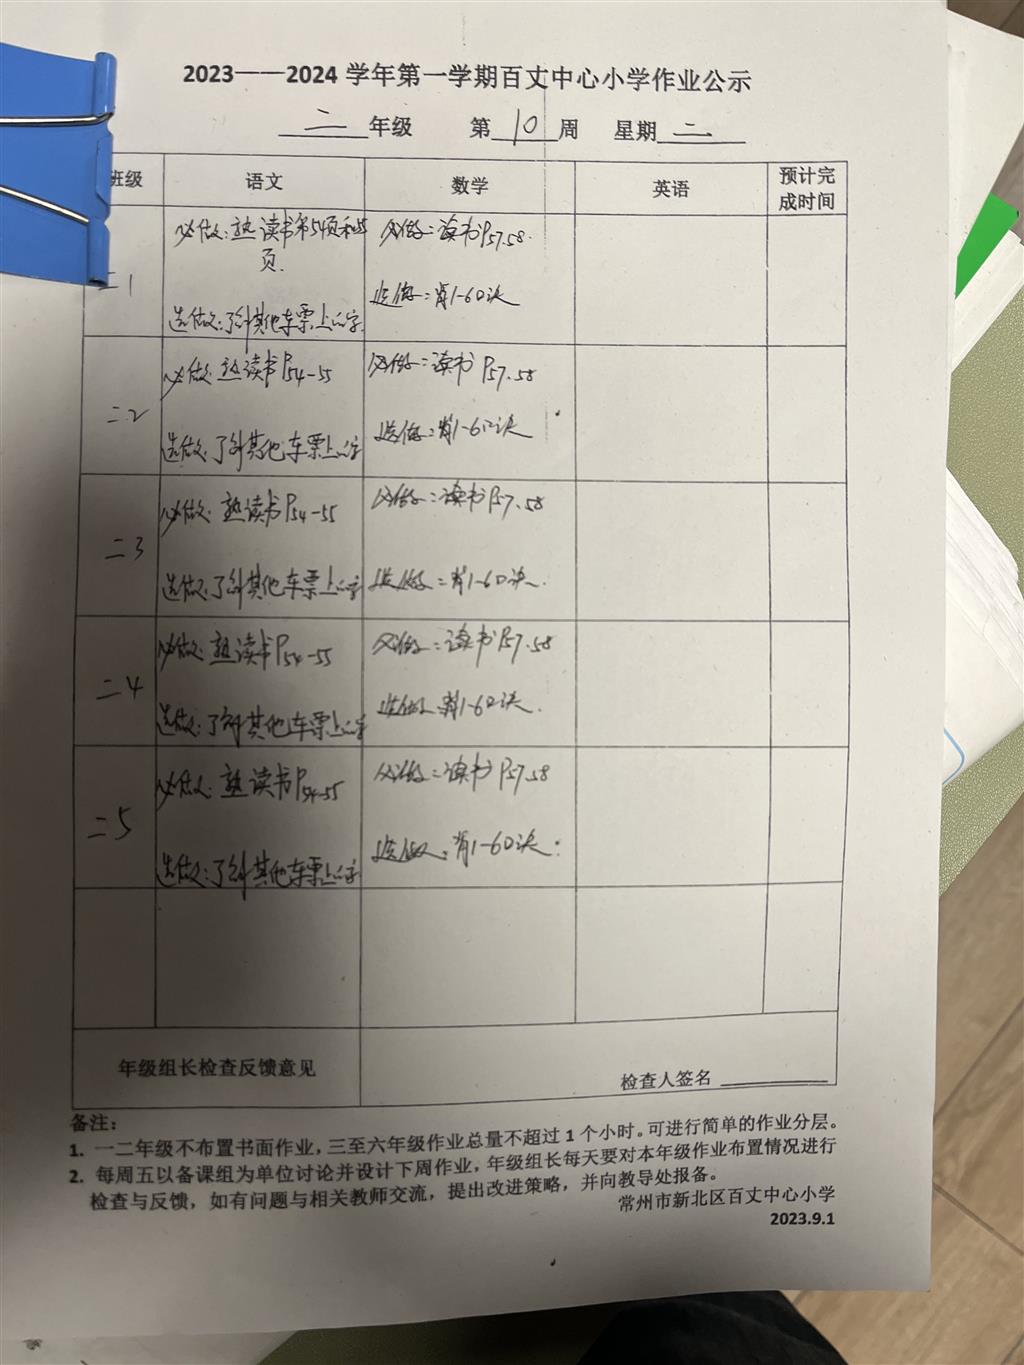 2023——2024 学年第一学期百丈中心小学作业公示
二 年级 第 10 周 星期 二
班级 语文 数学 英语 预计完成时间
二1
必做：熟读书第54页和55页.
选做：了解其他车票上的字.
必做：读书P57.58.
选做：背1-6口诀
二2
必做：熟读书P54-55
选做：了解其他车票上的字
必做：读书 P57.58
选做：背1-6口诀
二3
必做：熟读书P54-55
选做：了解其他车票上的字
必做：读书P57.58
选做：背1-6口诀.
二4
必做：熟读书P54-55
选做：了解其他车票上的字
必做：读书P57.58
选做：背1-6口诀.
二5
必做：熟读书P54-55
选做：了解其他车票上的字
必做：读书P57.58
选做：背1-6口诀.
年级组长检查反馈意见
检查人签名
备注：
1. 一二年级不布置书面作业，三至六年级作业总量不超过 1 个小时。可进行简单的作业分层。
2. 每周五以备课组为单位讨论并设计下周作业，年级组长每天要对本年级作业布置情况进行
检查与反馈，如有问题与相关教师交流，提出改进策略，并向教导处报备。
常州市新北区百丈中心小学
2023.9.1